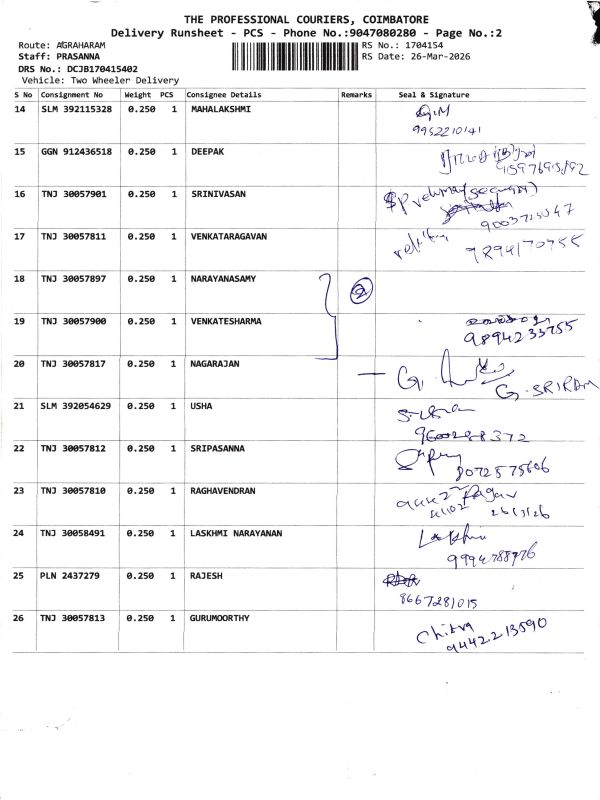 THE PROFESSIONAL COURIERS, COIMBATORE
Delivery Runsheet - PCS - Phone No.:9047080280 - Page No.:2
Route: AGRAHARAM
RS No.: 1704154
Staff: PRASANNA
RS Date: 26-Mar-2026
DRS No.: DCJB170415402
Vehicle: Two Wheeler Delivery
S No Consignment No Weight PCS Consignee Details Remarks Seal & Signature
14 SLM 392115328 0.250 1 MAHALAKSHMI
9952210141
15 GGN 912436518 0.250 1 DEEPAK
16 TNJ 30057901 0.250 1 SRINIVASAN
17 TNJ 30057811 0.250 1 VENKATARAGAVAN
9894170755
18 TNJ 30057897 0.250 1 NARAYANASAMY
2
19 TNJ 30057900 0.250 1 VENKATESHARMA
9894233755
20 TNJ 30057817 0.250 1 NAGARAJAN
G. SRIRAM
21 SLM 392054629 0.250 1 USHA
22 TNJ 30057812 0.250 1 SRIPASANNA
8072575606
23 TNJ 30057810 0.250 1 RAGHAVENDRAN
26/3/26
24 TNJ 30058491 0.250 1 LASKHMI NARAYANAN
Lakshmi
25 PLN 2437279 0.250 1 RAJESH
8667281015
26 TNJ 30057813 0.250 1 GURUMOORTHY
Chitra
9442213590